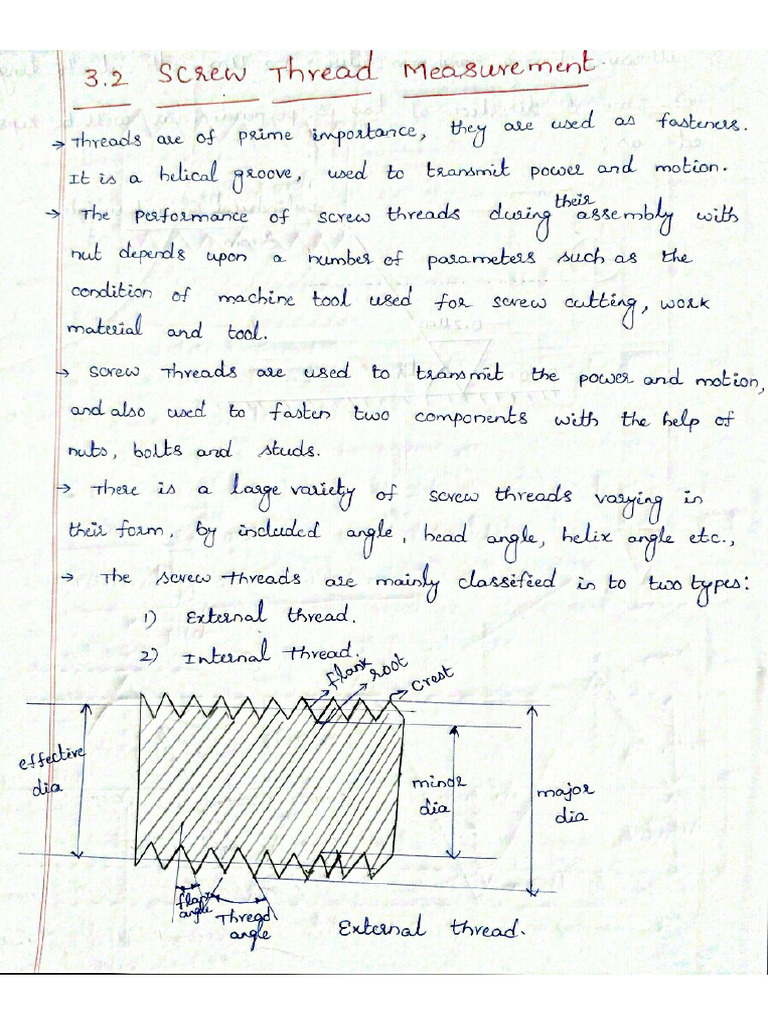 3.2 Screw Thread Measurement.
→ Threads are of prime importance, they are used as fasteners.
It is a helical groove, used to transmit power and motion.
→ The performance of screw threads during their assembly with
nut depends upon a number of parameters such as the
condition of machine tool used for screw cutting, work
material and tool.
→ Screw threads are used to transmit the power and motion,
and also used to fasten two components with the help of
nuts, bolts and studs.
→ There is a large variety of screw threads varying in
their form, by included angle, head angle, helix angle etc.,
→ The screw threads are mainly classified in to two types:
1) External thread.
2) Internal thread.
flank
root
crest
effective
dia
minor
dia
major
dia
flank
angle
Thread
angle
External thread.